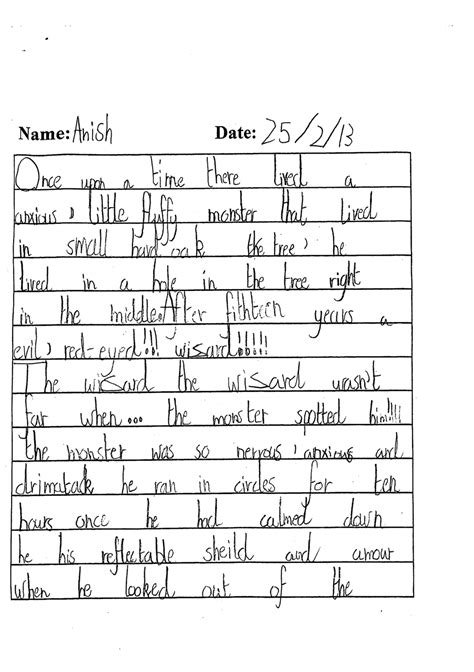 Name: Anish Date: 25/2/13
Once upon a time there lived a
anxious, little fluffy monster that lived
in small hard oak the tree, he
lived in a hole in the tree right
in the middle. After fithteen years a
evil, red-eyed!!! wizard!!!!!
The wizard the wizard wasn't
far when... the monster spotted him!!!!
the monster was so nervous, anxious and
drimatack he ran in circles for ten
hours once he had calmed down
he his reflectable sheild and amour
when he looked out of the